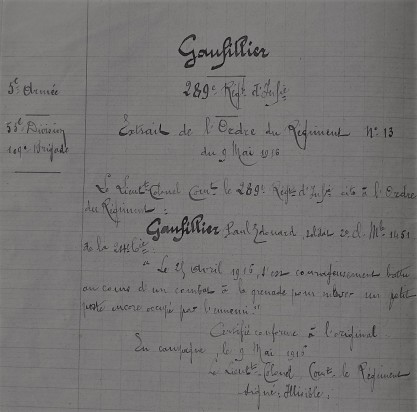 Gaufillier
5e Armée
289e Régt d'Infie
55e Division
Extrait de l'Ordre du Régiment N° 13
109e Brigade
du 9 Mai 1916
Le Lieutt Colonel Comt le 289e Régt d'Infie cite à l'Ordre
du Régiment :
Gaufillier Paul Edouard, soldat 2e cl. Mle
de la
" Le 25 Avril 1916, s'est courageusement battu
au cours d'un combat à la grenade pour enlever un petit
poste encore occupé par l'ennemi "
Certifié conforme à l'original
En campagne, le 9 Mai 1916
Le Lieutt-Colonel Comt le Régiment
Signé: Illisible.